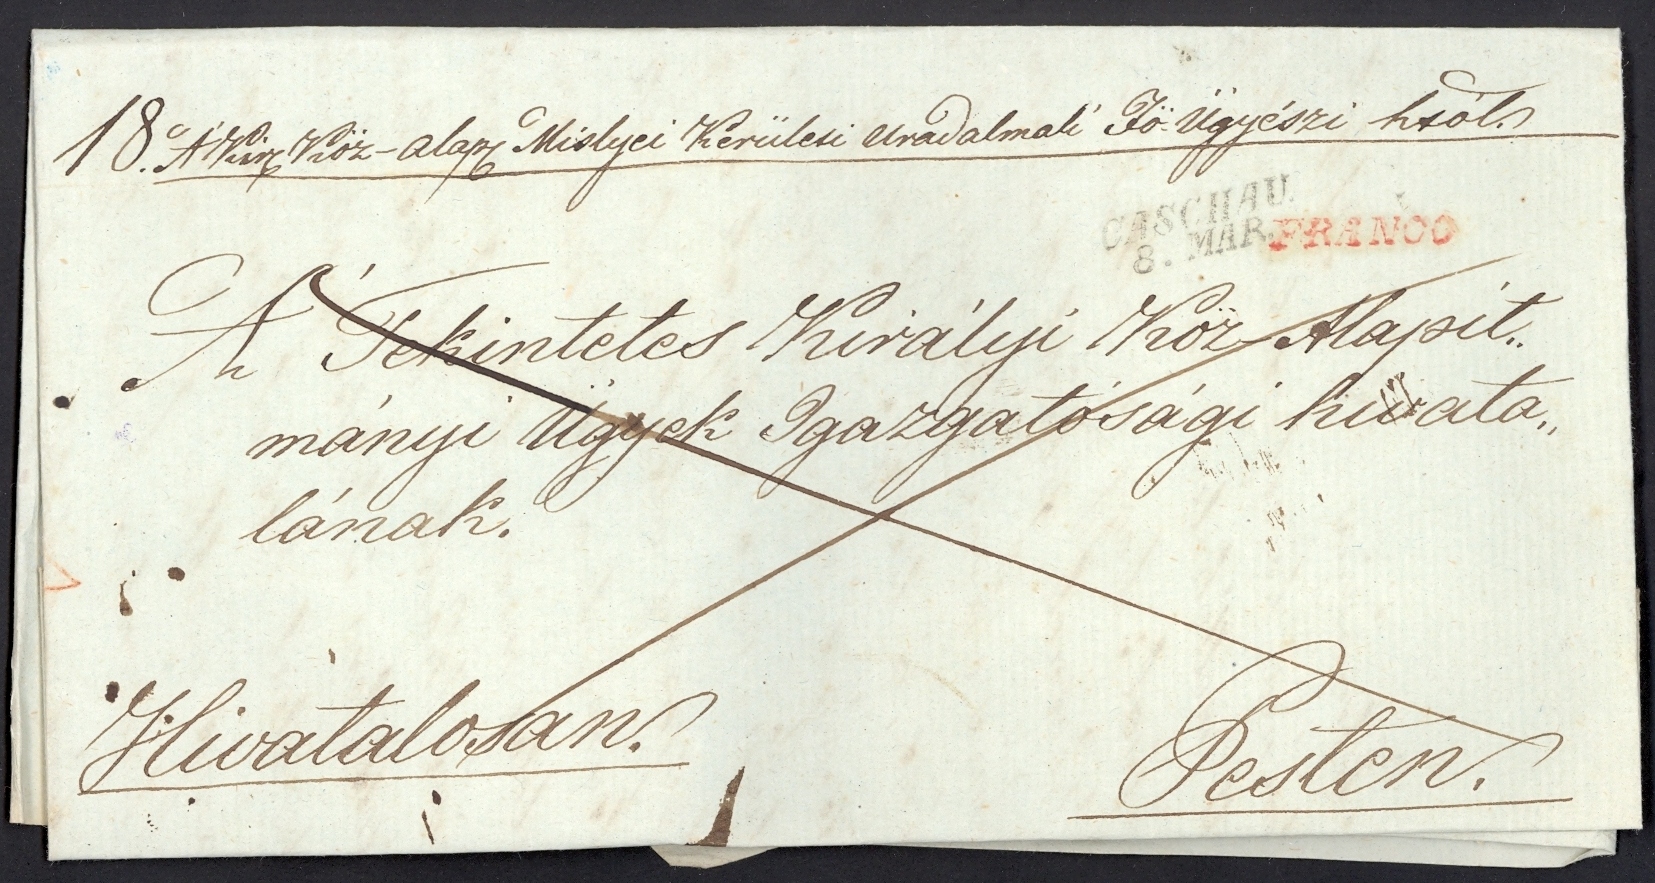 18. A' Kir. Köz-alap. Mislyei Kerületi uradalmali Fö-Ügyészi htól.
CASCHAU.
8. MAR.
FRANCO
A' Tekintetes Királyi Köz-Alapít„
mányi Ügyek Igazgatósági hivata„
lának.
Hivatalosan.
Pesten.